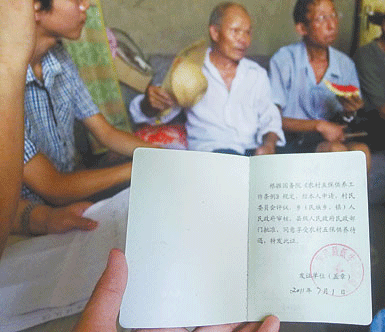 根据国务院《农村五保供养工
作条例》规定，经本人申请，村民
委员会评议，乡（民族乡、镇）人
民政府审核，县级人民政府民政部
门批准，同意享受农村五保供养待
遇，特发此证。
发证单位（盖章）
2011年7月1日